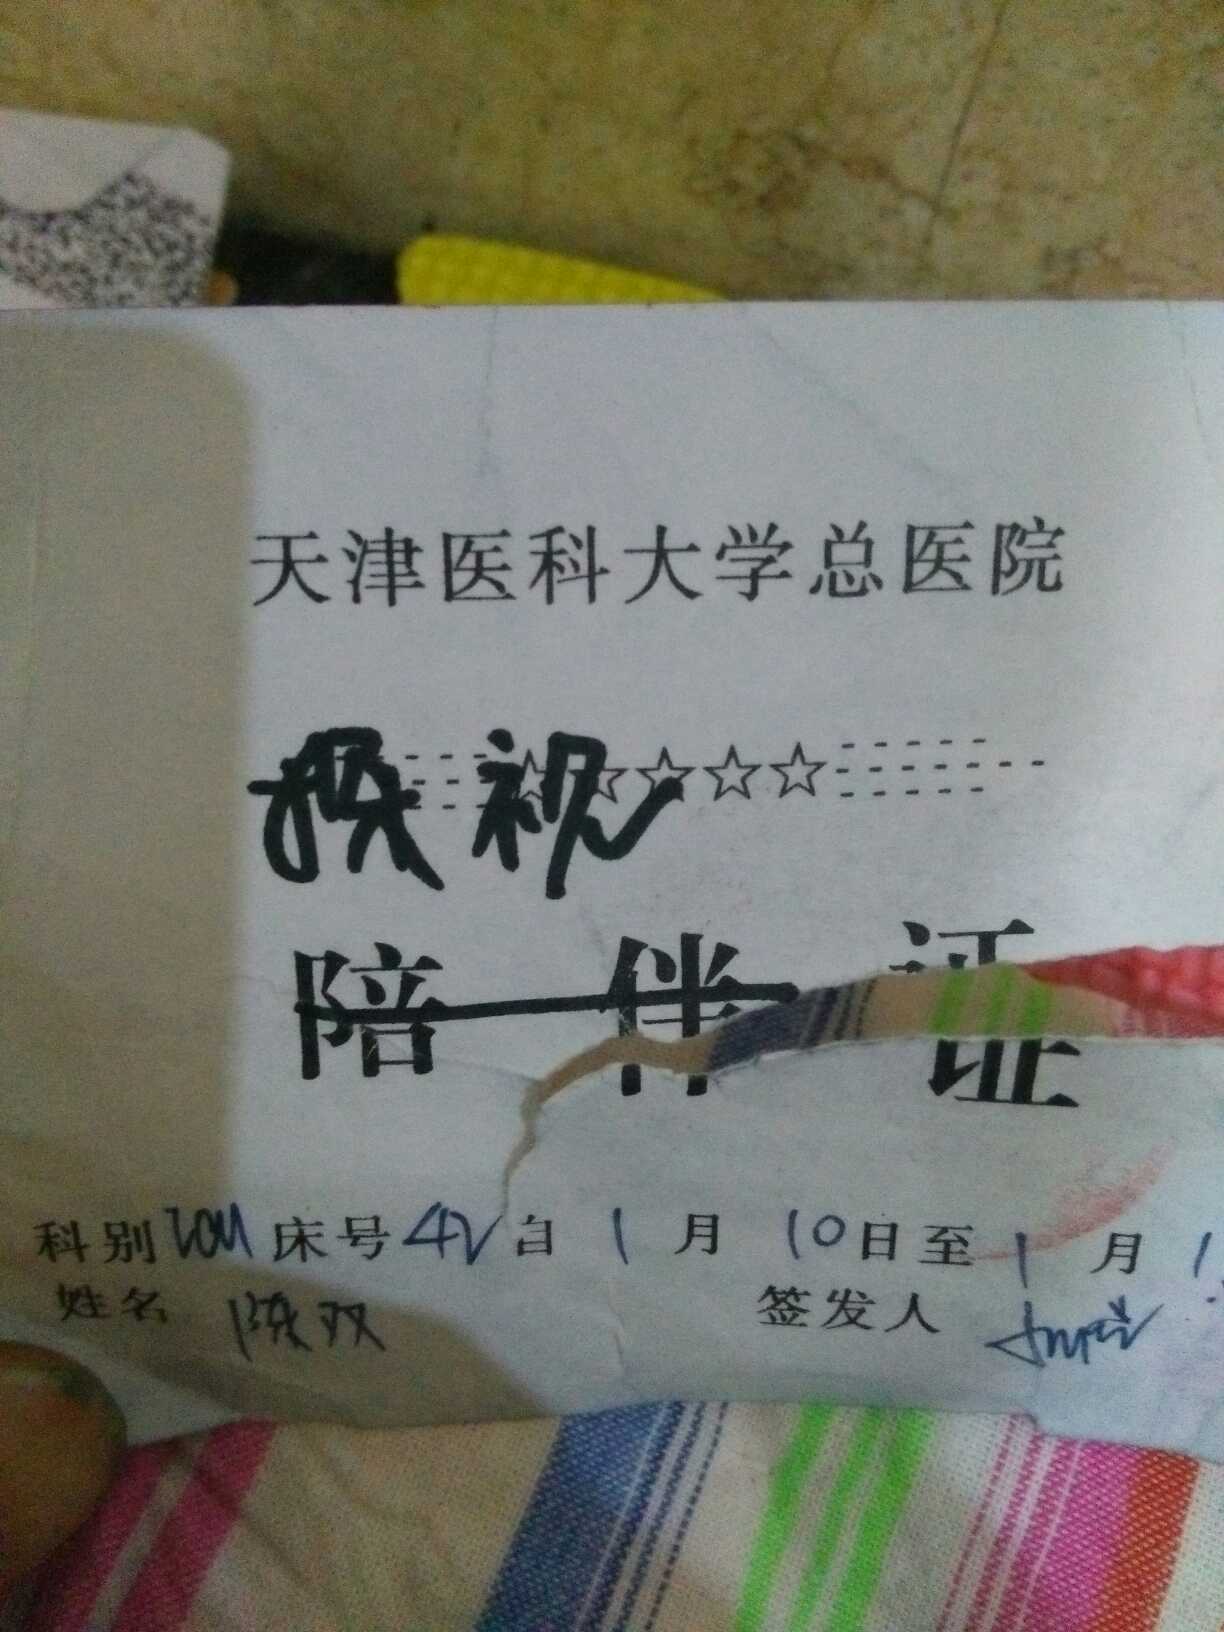 天津医科大学总医院
探视☆☆☆☆
陪伴证
科别 床号42自1月10日至1月1
姓名 陈双 签发人